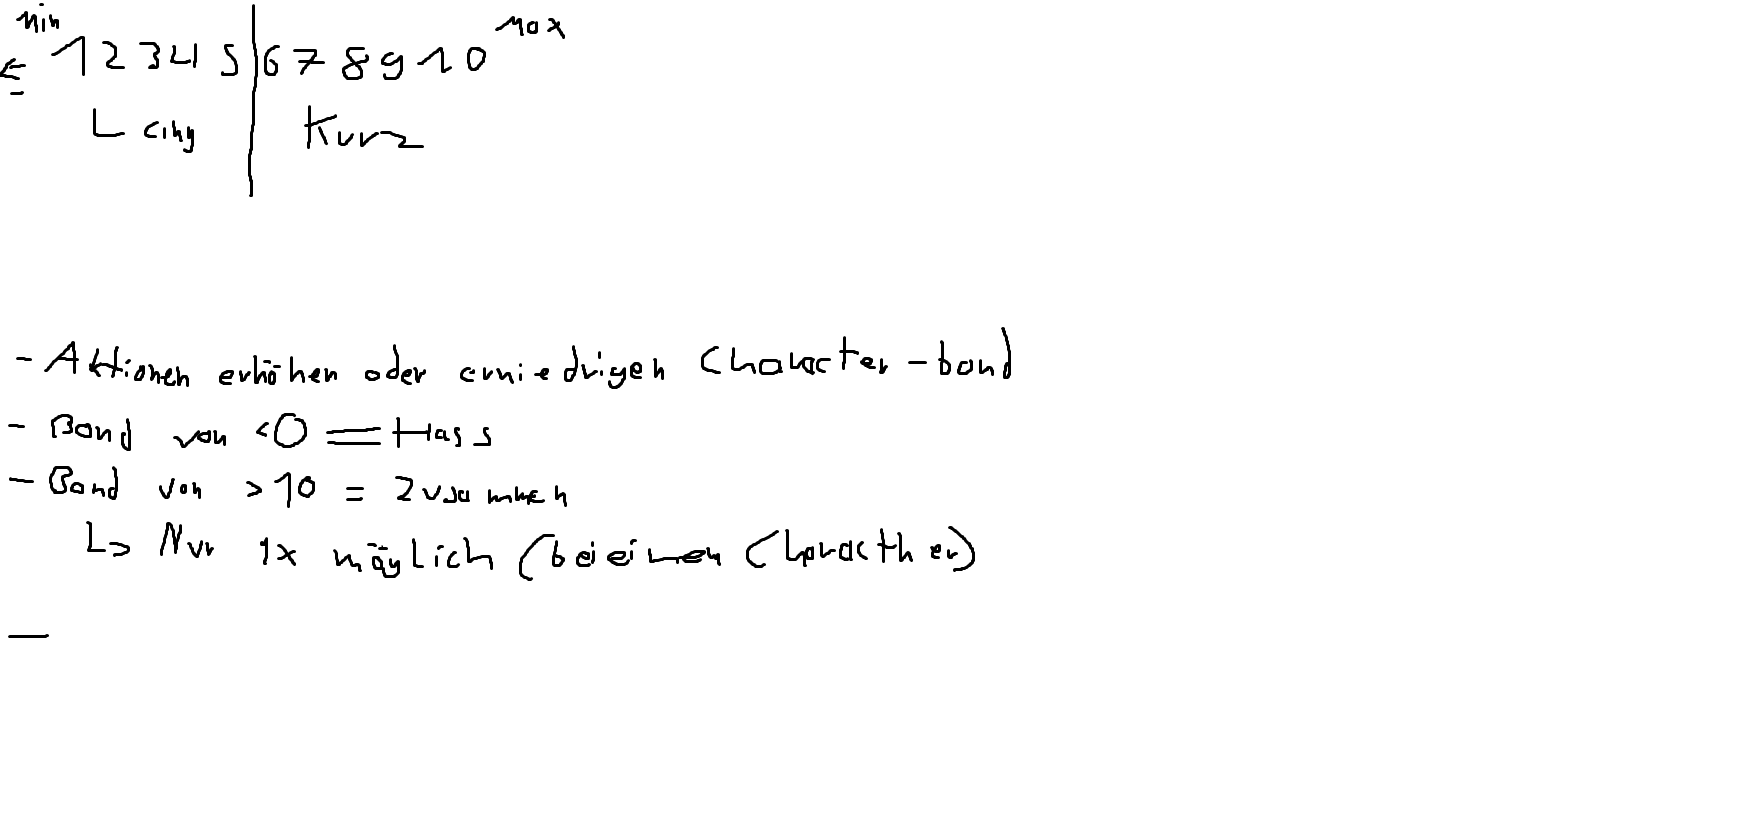 min 1 2 3 4 5 | 6 7 8 9 10 max
Lang | Kurz
- Aktionen erhöhen oder erniedrigen Character-bond
- Bond von <0 = Hass
- Bond von >10 = Zusammen
L> Nur 1x möglich (bei einen Characther)
-